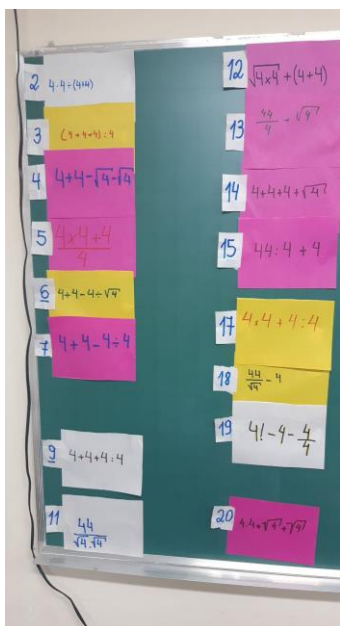 2 4·4÷(4+4)
3 (4+4+4):4
4 4+4-√4-√4
5 4×4+4
4
6 4+4-4÷√4
7 4+4-4÷4
9 4+4+4:4
11 44
√4·√4
12 √4×4+(4+4)
13 44
4 + √4
14 4+4+4+√4
15 44:4+4
17 4×4+4:4
18 44
√4 -4
19 4!-4-4
4
20 4·4+√4+√4